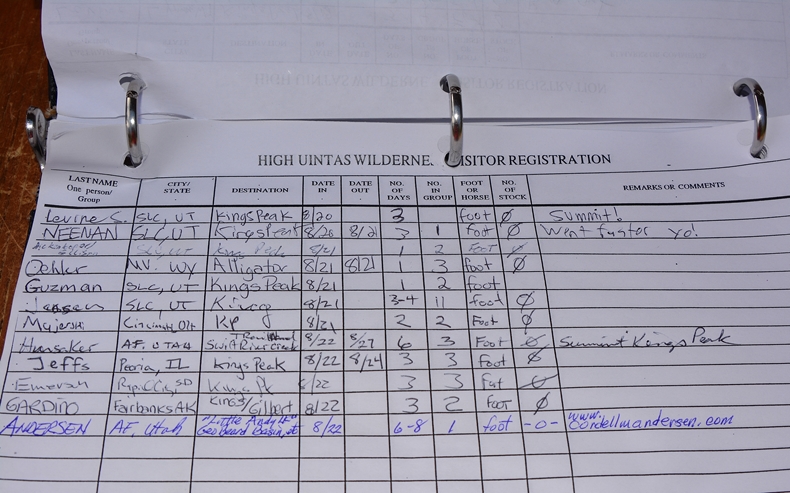 HIGH UINTAS WILDERNE VISITOR REGISTRATION
LAST NAME One person/ Group CITY/ STATE DESTINATION DATE IN DATE OUT NO. OF DAYS NO. IN GROUP FOOT OR HORSE NO. OF STOCK REMARKS OR COMMENTS
Levine S. SLC, UT Kings Peak 8/20 3 foot Ø Summit!
NEENAN SLC, UT Kings Peak 8/20 8/21 3 1 foot Ø Went faster yo!
SLC, UT King Peak 8/21 1 2 FOOT Ø
Oehler WY Alligator 8/21 8/21 1 3 foot Ø
Guzman SLC, UT Kings Peak 8/21 1 2 foot
Jensen SLC, UT Kings 8/21 3-4 11 foot Ø
Majerski Cincinnati, OH KP 8/21 2 2 Foot Ø
Hunsaker A.F. UTAH Swift River Creek 8/22 8/27 6 3 Foot Ø Summit Kings Peak
Jeffs Peoria, IL Kings Peak 8/22 8/24 3 3 foot Ø
Rapid City, SD Kings Pk 8/22 3 3 Fut Ø
GARDIÑO Fairbanks AK Kings/Gilbert 8/22 3 2 FOOT Ø
ANDERSEN A.F., Utah "Little Andy" 8/22 6-8 1 foot -0- www.cordellmandersen.com